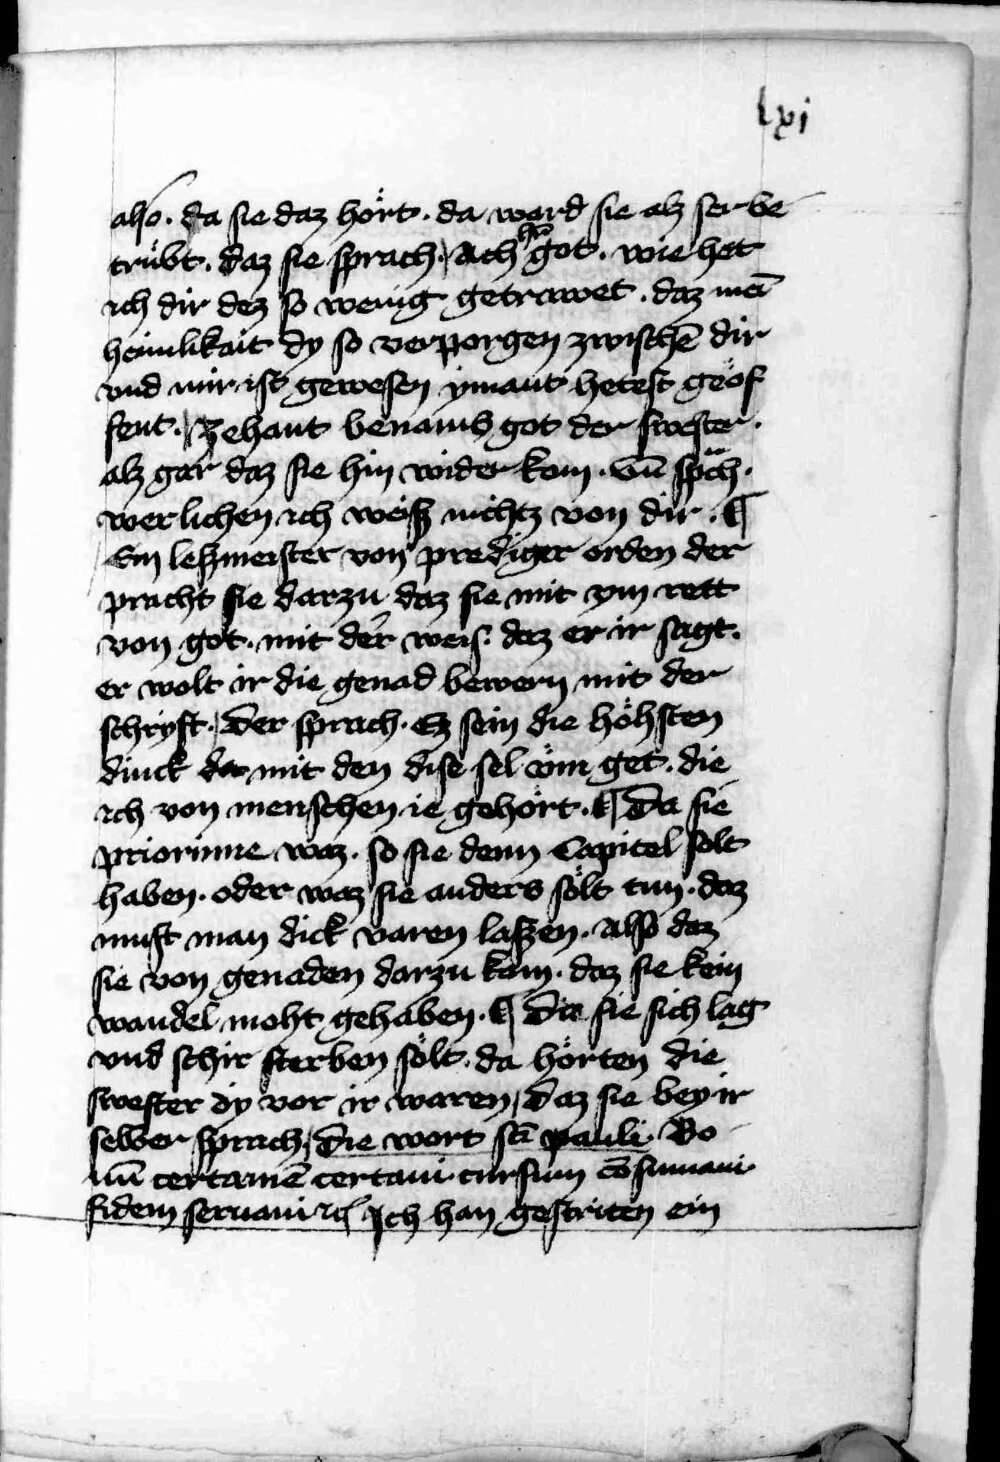 lxi
also. da sie daz hört. da ward sie alz ser be
trübt. daz sie sprach. Ach h͛r got. wie het
ich dir dez so wenig getrawet. daz mei͂
heimlikait dy so verporgen zwischē dir
vnd mir ist gewesen ymant hetest geöf
fent. Zehant benamb got der swester.
alz gar daz sie hin wider kom. vn̄ sp͛ch.
werlichen ich weisz nichtz von dir. ¶
Ein leszmeister von prediger orden der
pracht sie darzu daz sie mit ym rett
von got. mit der weis. daz er ir sagt.
er wolt ir die genad bewern mit der
schryft. Der sprach. Ez sein die höhsten
dinck do mit den dise sel vm get. die
ich von menschen ie gehört. ¶ Da sie
priorinne waz. so sie denn Capitel solt
haben. oder waz sie anders sölt tun. daz
must man dick varen laszen. Also daz
sie von genaden darzu kam. daz sie kein
wandel moht gehaben. ¶ Da sie sich lag
vnd schir sterben sölt. da hörten die
swester dy vor ir waren, daz sie bey ir
selber sprach, die wort sc̄i pauli. Bo
nū certamē certaui cursum cōsumaui
fidem seruaui ꝛc̄ Ich han gestriten ein